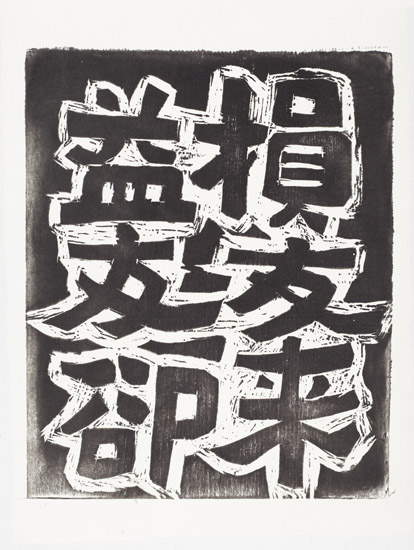 損友来
益友卻